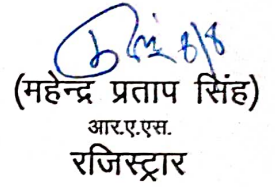 8/8
(महेन्द्र प्रताप सिंह)
आर.ए.एस.
रजिस्ट्रार